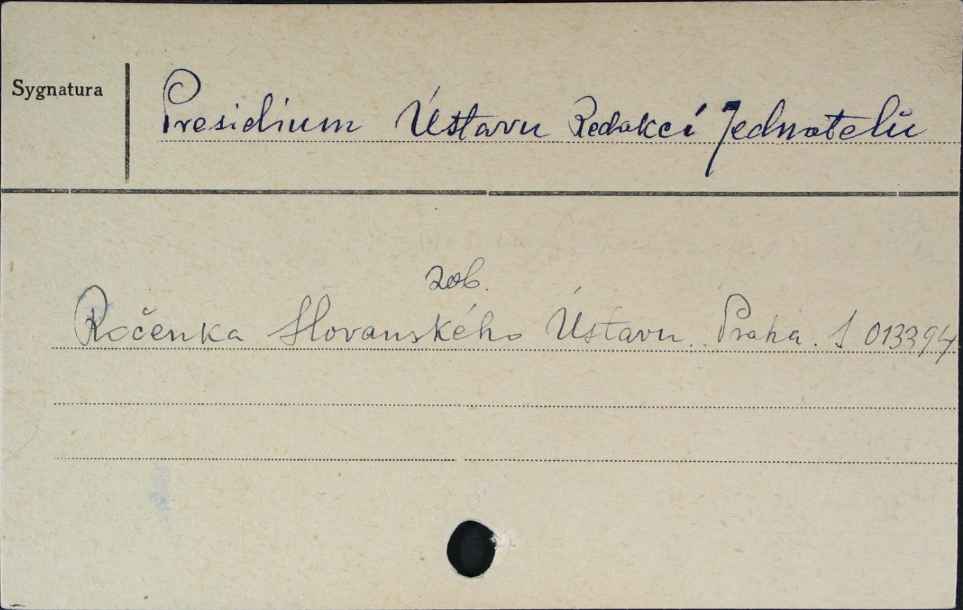 Sygnatura
Presidium Ústavu Redakcí Jednatelů
zob.
Ročenka Slovanského Ústavu. Praha. I 013394